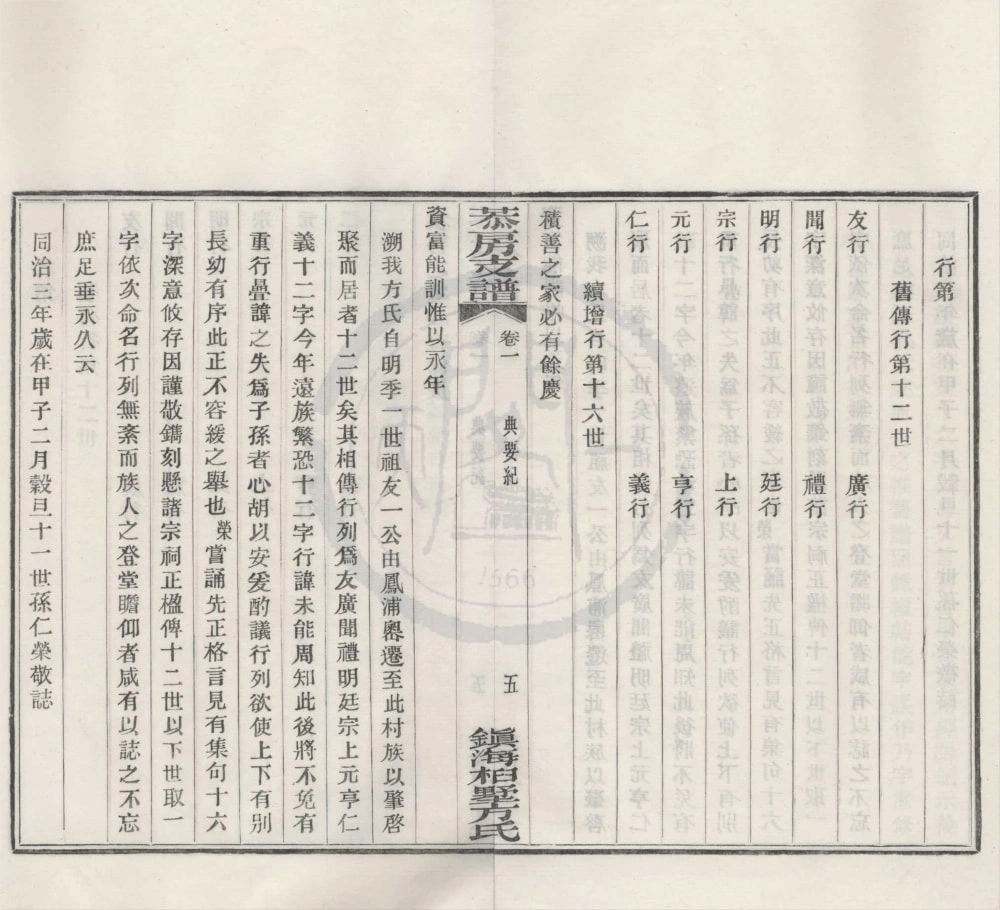 行第
舊傳行第十二世
友行 廣行
聞行 禮行
明行 廷行
宗行 上行
元行 亨行
仁行 義行
續增行第十六世
積善之家必有餘慶
恭房支譜 卷一 典要紀 五 鎮海柏墅方氏
資富能訓惟以永年
溯我方氏自明季一世祖友一公由鳳浦嶴遷至此村族以肇啓
聚而居者十二世矣其相傳行列爲友廣聞禮明廷宗上元亨仁
義十二字今年遠族繁恐十二字行諱未能周知此後將不免有
重行疊諱之失爲子孫者心胡以安爰酌議行列欲使上下有別
長幼有序此正不容緩之舉也榮嘗誦先正格言見有集句十六
字深意攸存因謹敬鐫刻懸諸宗祠正楹俾十二世以下世取一
字依次命名行列無紊而族人之登堂瞻仰者咸有以誌之不忘
庶足垂永久云
同治三年歲在甲子二月穀旦十一世孫仁榮敬誌
1666